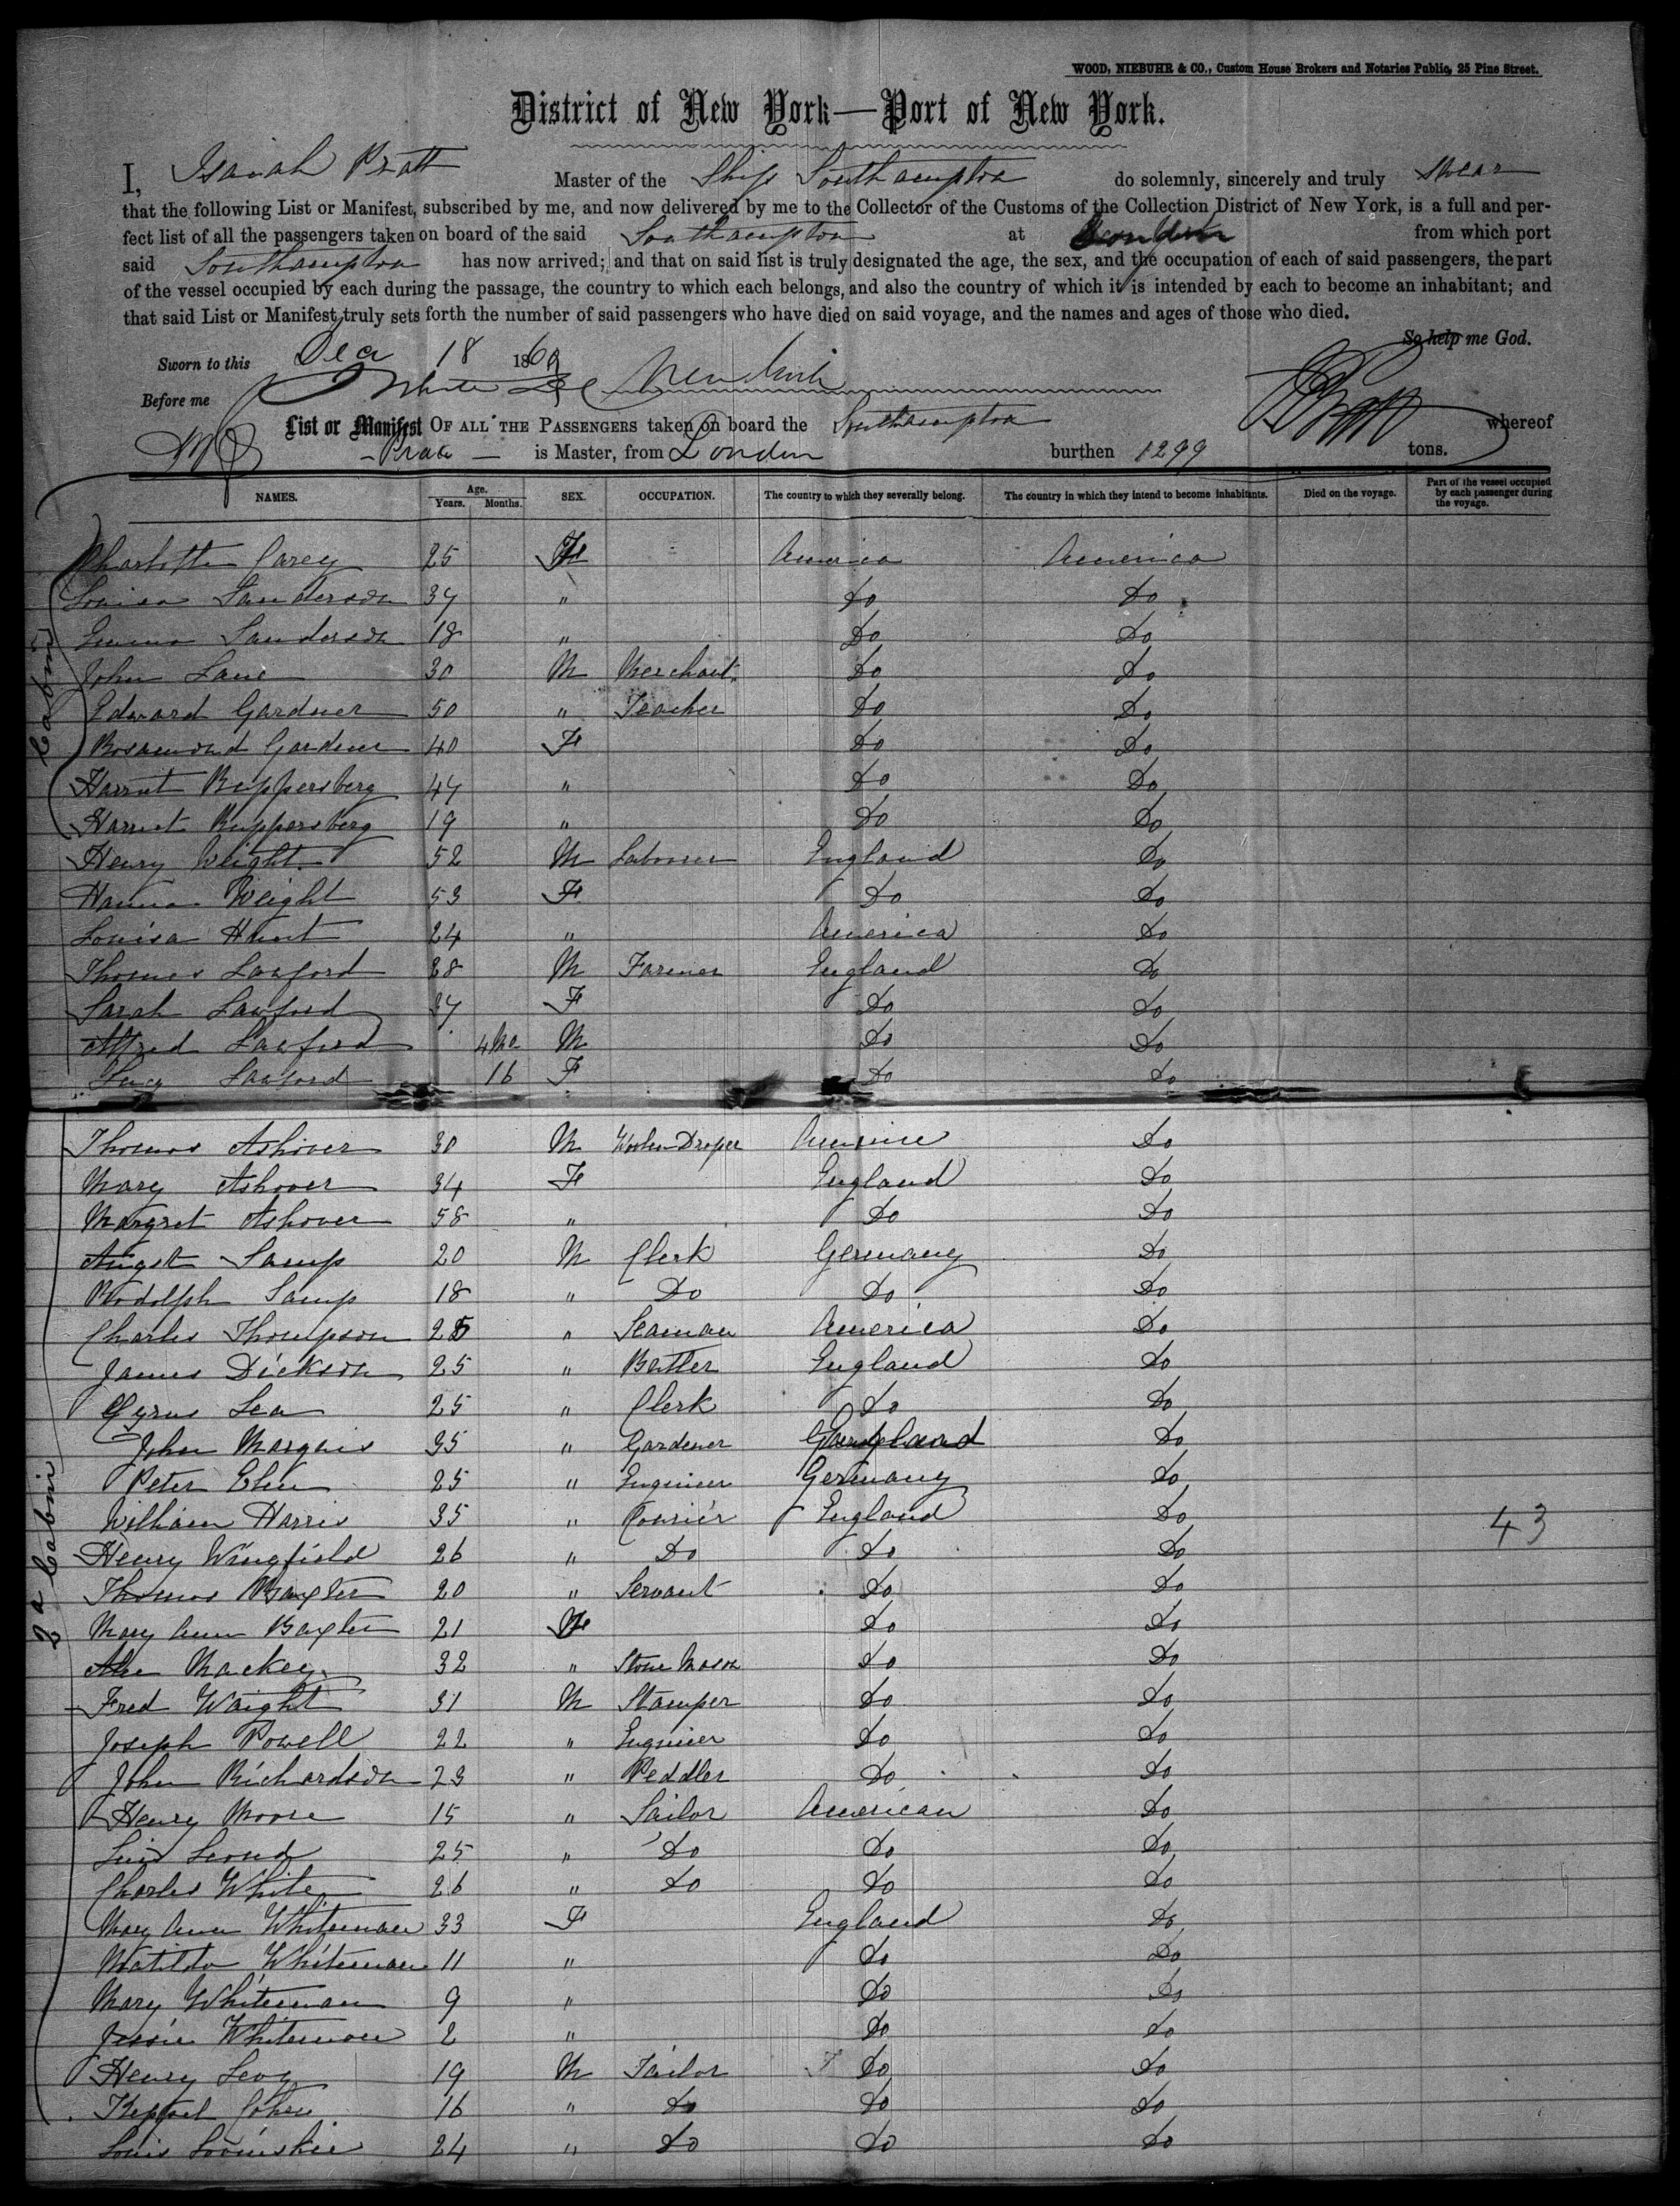 WOOD, NIEBUHR & CO., Custom House Brokers and Notaries Public, 25 Pine Street.
District of New York—Port of New York.
I, Isaiah Pratt Master of the Ship Southampton do solemnly, sincerely and truly swear
that the following List or Manifest, subscribed by me, and now delivered by me to the Collector of the Customs of the Collection District of New York, is a full and per-
fect list of all the passengers taken on board of the said Southampton at London from which port
said Southampton has now arrived; and that on said list is truly designated the age, the sex, and the occupation of each of said passengers, the part
of the vessel occupied by each during the passage, the country to which each belongs, and also the country of which it is intended by each to become an inhabitant; and
that said List or Manifest truly sets forth the number of said passengers who have died on said voyage, and the names and ages of those who died.
So help me God.
Sworn to this Dec 18 1869
Before me
List or Manifest OF ALL THE PASSENGERS taken on board the Southampton whereof
Pratt is Master, from London burthen 1299 tons.
NAMES. Age. Years. Months. SEX. OCCUPATION. The country to which they severally belong. The country in which they intend to become inhabitants. Died on the voyage. Part of the vessel occupied by each passenger during the voyage.
Cabin
Charlotte Carey 25 F America America
Louisa Sanderson 37 " Do Do
Emma Sanderson 18 " Do Do
John Lane 30 M Merchant Do Do
Edward Gardner 50 " Teacher Do Do
Rosamond Gardner 40 F Do Do
Harriet Ruppersberg 47 " Do Do
Harriet Ruppersberg 19 " Do Do
Henry Weight 52 M Labourer England Do
Hanna Weight 53 F Do Do
Louisa Hunt 24 " America Do
Thomas Lawford 38 M Farmer England Do
Sarah Lawford 37 F Do Do
Alfred Lawford 4 Mo M Do Do
Lucy Lawford 16 F Do Do
2d Cabin
Thomas Ashover 30 M Woolen Draper Do
Mary Ashover 34 F England Do
Margret Ashover 58 " Do Do
Augst Samp 20 M Clerk Germany Do
Rodolph Samp 18 " Do Do Do
Charles Thompson 25 " Seaman America Do
James Dickson 25 " Butler England Do
Cyrus Lea 25 " Clerk Do Do
John Marquis 35 " Gardener England Do
Peter 25 " Engineer Germany Do
William Harris 35 " Courier England Do 43
Henry Wingfield 26 " Do Do Do
Thomas Baxter 20 " Servant Do Do
Mary Ann Baxter 21 F Do Do
Alex Mackey 32 " Stone Mason Do Do
Fred Waight 31 M Stamper Do Do
Joseph Powell 22 " Engineer Do Do
John Richardson 23 " Peddler Do Do
Henry Moore 15 " Sailor American Do
25 " Do Do Do
Charles White 26 " Do Do Do
Mary Ann Whiteman 33 F England Do
Matilda Whiteman 11 " Do Do
Mary Whiteman 9 " Do Do
Jessie Whiteman 2 " Do Do
Henry Levy 19 M Tailor Do Do
Cohen 16 " Do Do Do
Louis 24 " Do Do Do